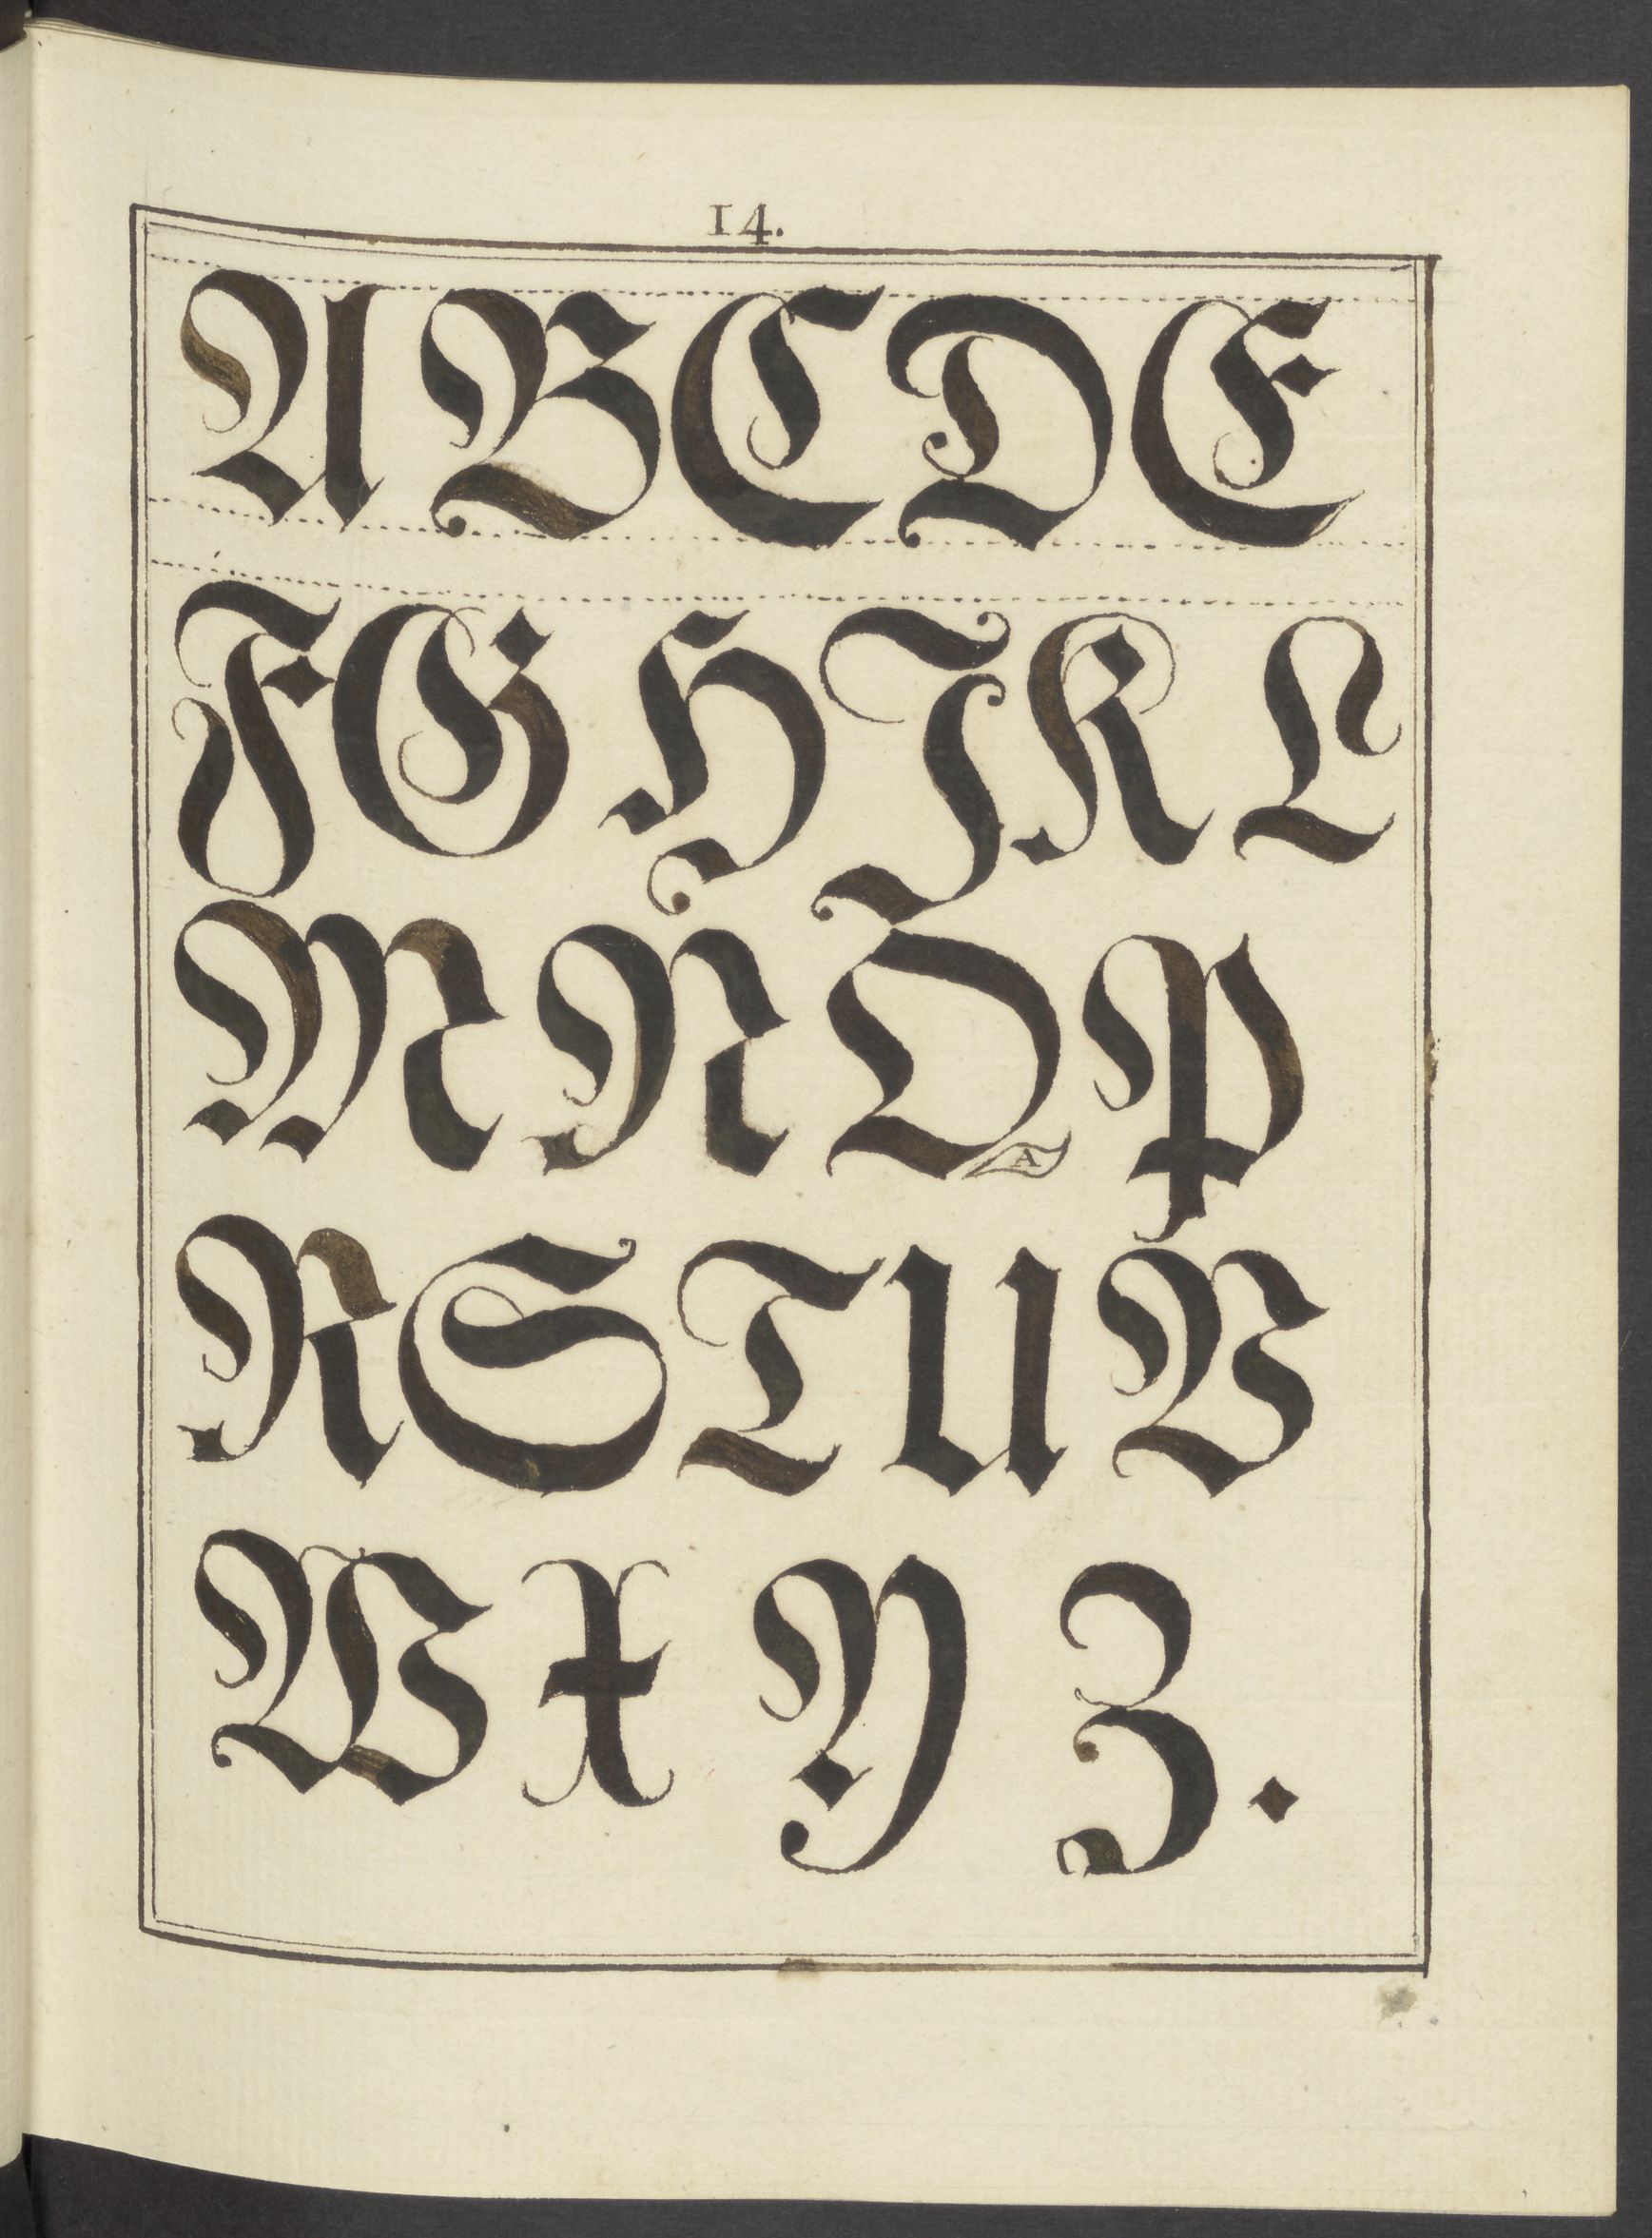 14.
A B C D E
F G H I K L
M N O A P
R S T U V
W X Y Z.